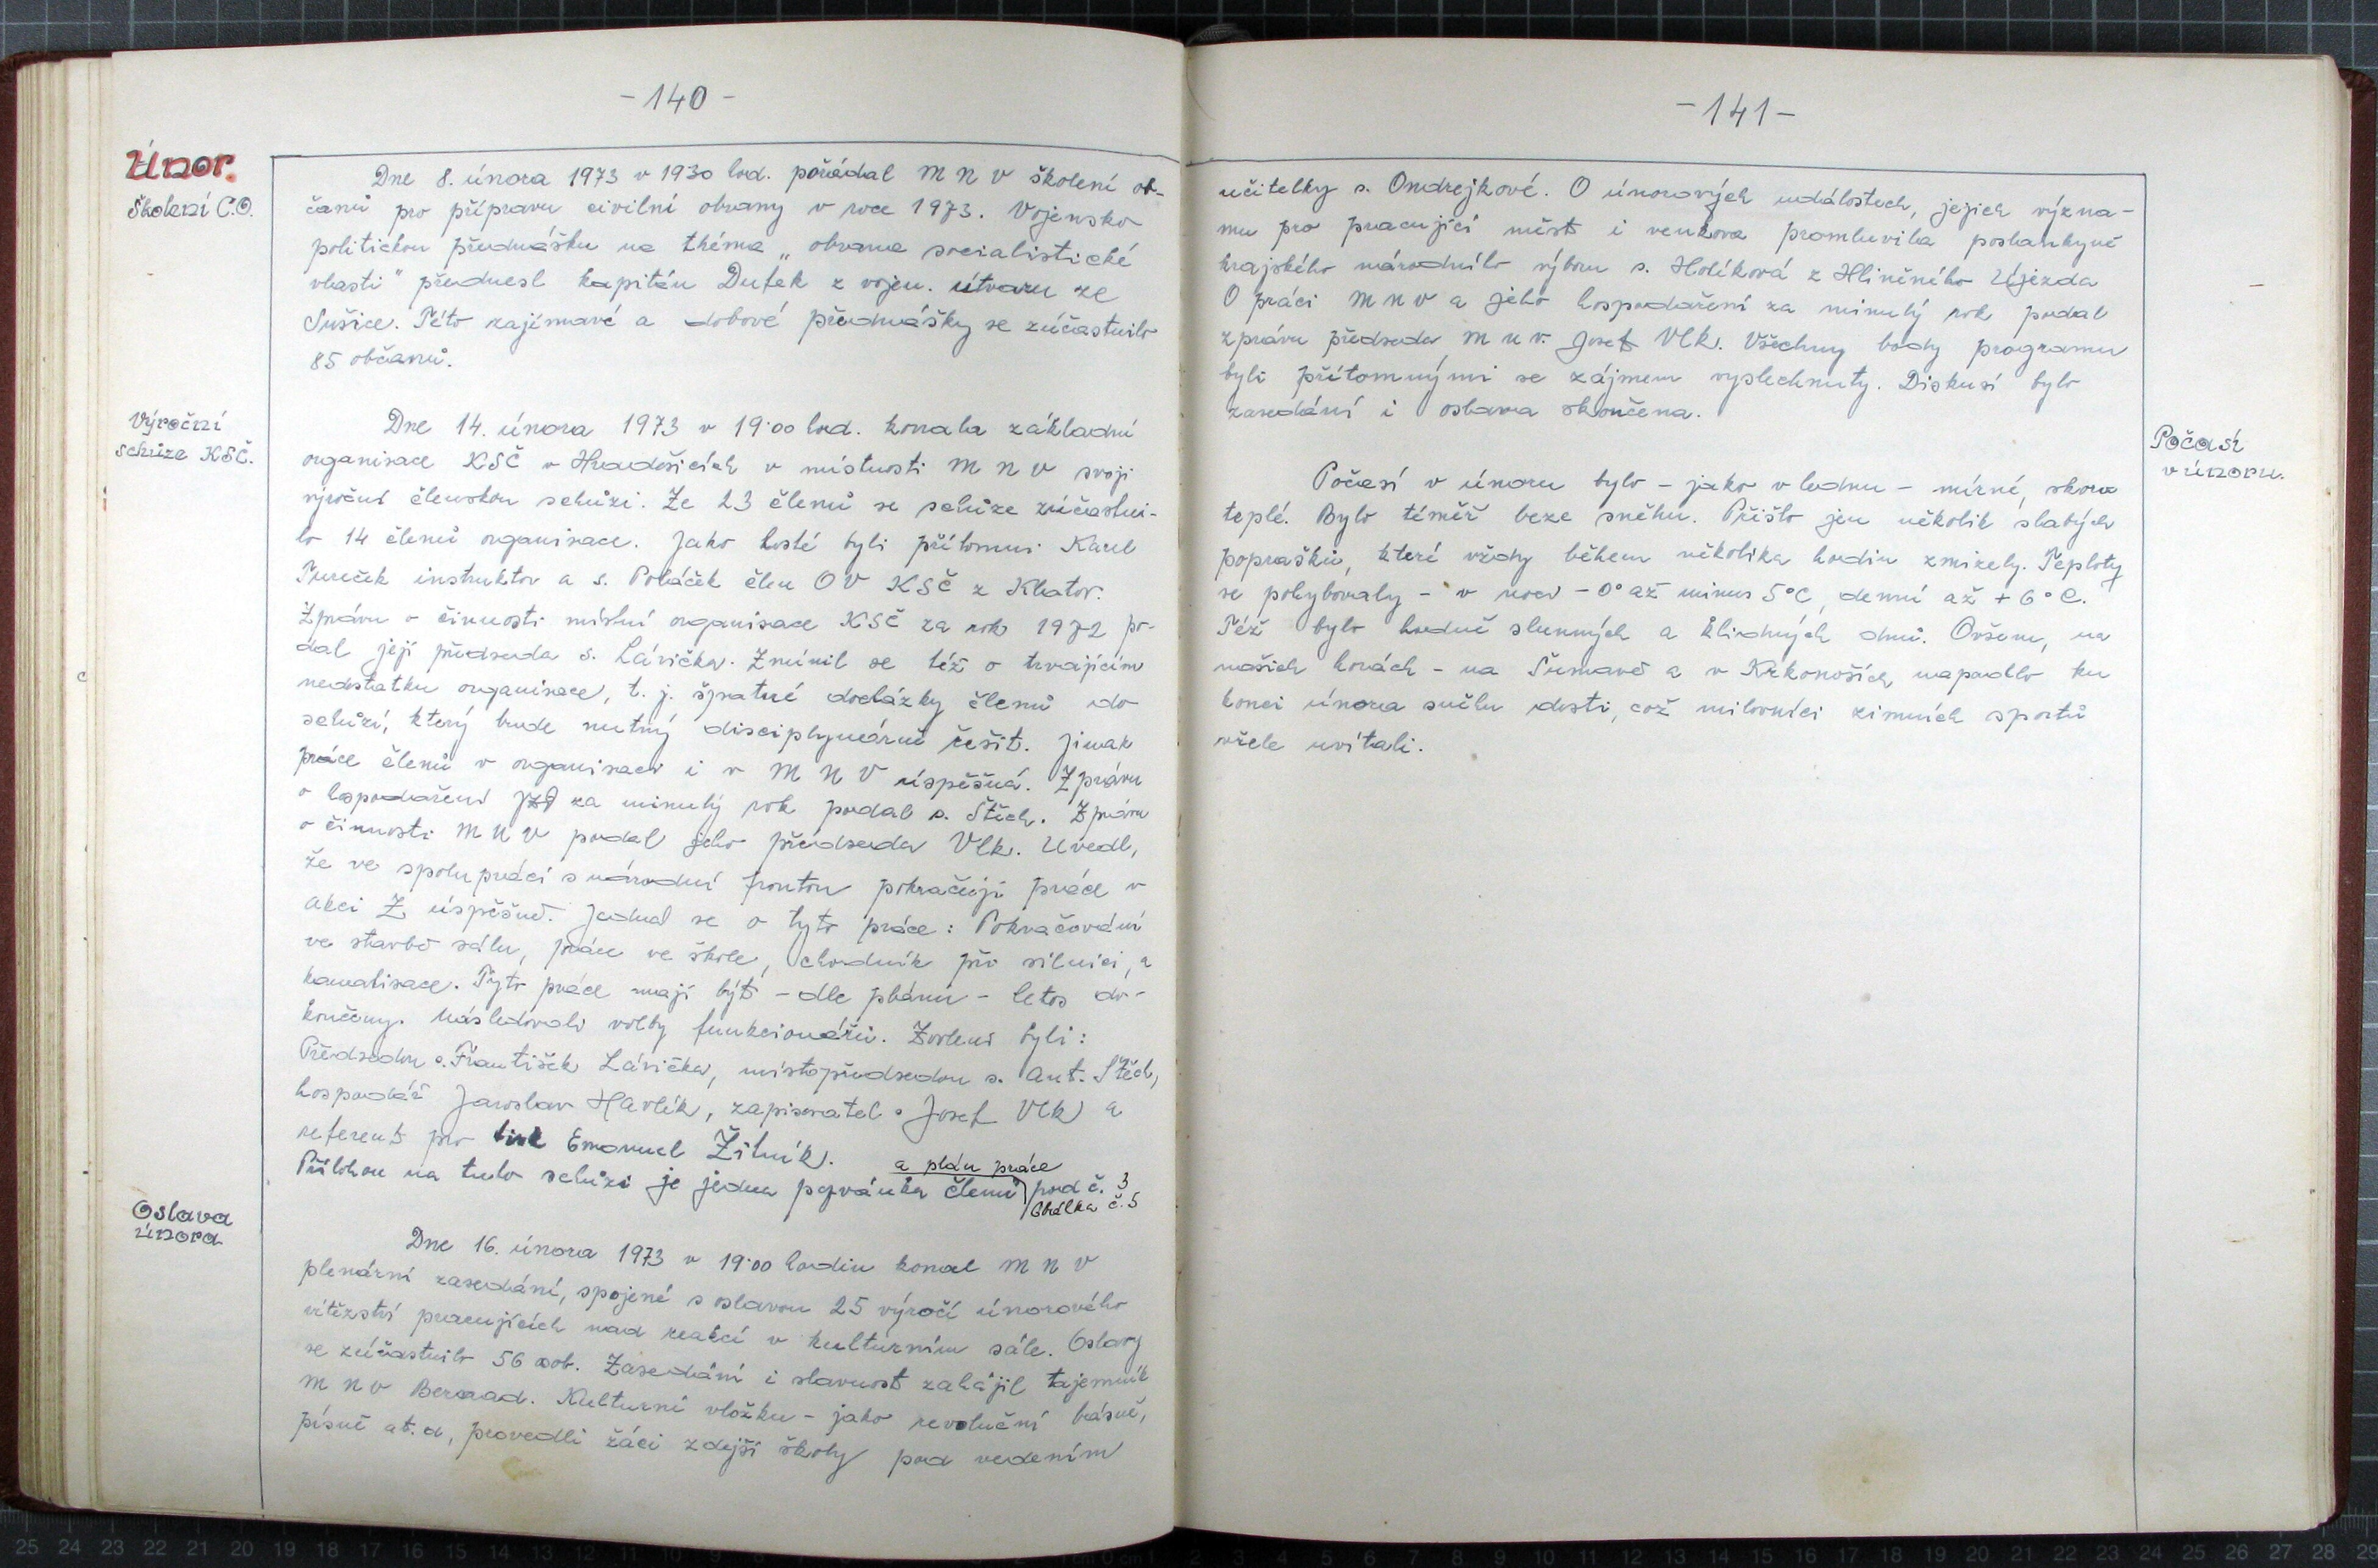 -140-
Únor.
Školení C.O.
Dne 8. února 1973 v 1930 hod. pořádal M N V školení ob-
čanů pro přípravu civilní obrany v roce 1973. Vojensko
politickou přednášku na théma „obrana socialistické
vlasti" přednesl kapitán Dufek z vojen. útvaru ze
Sušice. Této zajímavé a dobové přednášky se zúčastnilo
85 občanů.
Výroční
schůze KSČ.
Dne 14. února 1973 v 19.00 hod. konala základní
organisace KSČ v Hradešicích v místnosti M N V svoji
výroční členskou schůzi. Ze 23 členů se schůze zúčastni-
lo 14 členů organisace. Jako hosté byli přítomni Karel
Tureček instruktor a s. Poláček člen OV KSČ z Klatov.
Zprávu o činnosti místní organisace KSČ za rok 1972 po-
dal její předseda s. Lávička. Zmínil se též o trvajícím
nedostatku organisace, t. j. špatné docházky členů do
schůzí, který bude nutný disciplynárně řešit. Jinak
práce členů v organisaci i v M N V úspěšná. Zprávu
o hospodaření JZD za minulý rok podal s. Štěch. Zprávu
o činnosti M N V podal jeho předseda Vlk. Uvedl,
že ve spolupráci s národní frontou pokračují práce v
akci Z úspěšně. Jednal se o tyto práce: Pokračování
ve stavbě sálu, práce ve škole, chodník při silnici, a
kanalisace. Tyto práce mají být - dle plánu - letos do-
končeny. Následovali volby funkcionářů. Zvoleni byli:
Předsedou s. František Lávička, místopředsedou s. Ant. Štěch,
hospodář Jaroslav Havlík, zapisovatel s Josef Vlk a
referent pro tisk Emanuel Žilník.
a plán práce
Přílohou na tuto schůzi je jedna pozvánka členů pod č. 3
Obálka č. 5
Oslava
února
Dne 16. února 1973 v 19.00 hodin konal M N V
plenární zasedání, spojené s oslavou 25 výročí únorového
vítězství pracujících nad reakcí v kulturním sále. Oslavy
se zúčastnilo 56 osob. Zasedání i slavnost zahájil tajemník
M N V Bernad. Kulturní vložku - jako revoluční básně,
písně at.d, provedli žáci zdejší školy pod vedením
-141-
učitelky s. Ondrejkové. O únorových událostech, jejich význa-
mu pro pracující měst i venkova promluvila poslankyně
krajského národního výboru s. Holíková z Hliněného Újezda
O práci M N V a jeho hospodaření za minulý rok podal
zprávu předseda M N V. Josef Vlk. Všechny body programu
byli přítomnými se zájmem vyslechnuty. Diskusí bylo
zasedání i oslava skončena.
Počasí
v únoru.
Počasí v únoru bylo - jako v lednu - mírné, skoro
teplé. Bylo téměř beze sněhu. Přišlo jen několik slabých
poprašků, které vždy během několika hodin zmizely. Teploty
se pohybovaly - v noci - 0° až minus 5°C, denní až + 6°C.
Též bylo hodně slunných a klidných dnů. Ovšem, na
našich horách - na Šumavě a v Krkonoších, napadlo ku
konci února sněhu dosti, což milovníci zimních sportů
vřele uvítali.